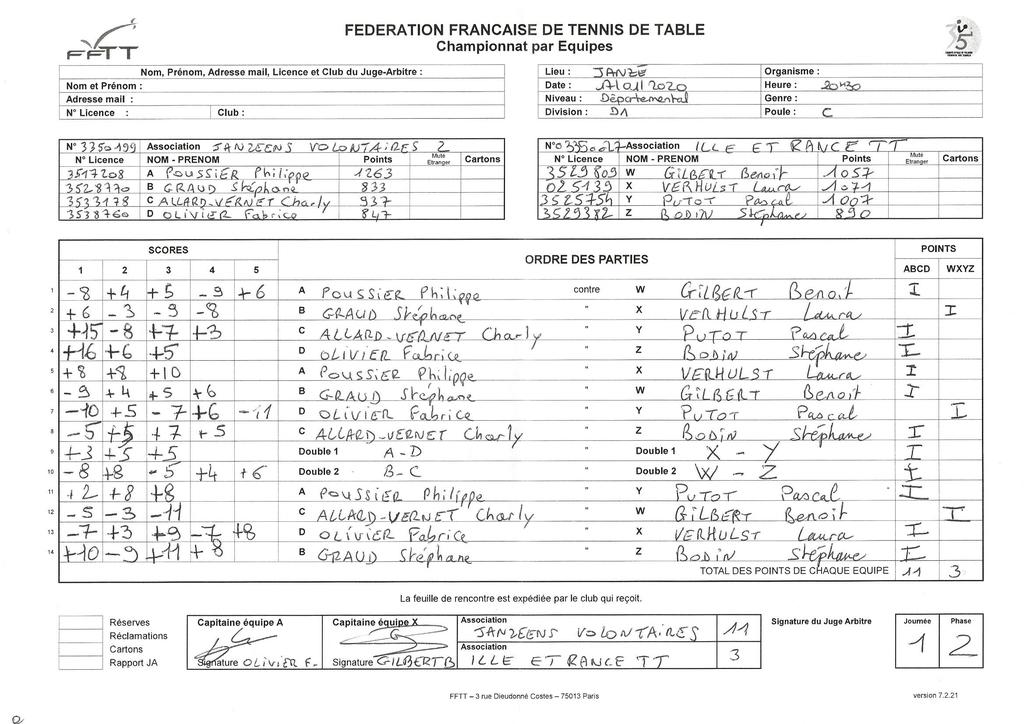 FFTT
FEDERATION FRANCAISE DE TENNIS DE TABLE
Championnat par Equipes
Nom, Prénom, Adresse mail, Licence et Club du Juge-Arbitre :
Nom et Prénom :
Adresse mail :
N° Licence : Club :
Lieu : JANZE Organisme :
Date : 17/01/2020 Heure : 20H30
Niveau : Départemental Genre :
Division : D1 Poule : C
N° 3350199 Association JANZEENS VOLONTAIRES 2
N° Licence NOM - PRENOM Points Muté Etranger Cartons
3517208 A POUSSIER Philippe 1263
3528770 B GRAUD Stéphane 833
3533178 C ALLARD-VERNET Charly 937
3538760 D OLIVIER Fabrice 847
N° 03350027 Association ILLE ET RANCE TT
N° Licence NOM - PRENOM Points Muté Etranger Cartons
3529809 W GILBERT Benoit 1057
025139 X VERHULST Laura 1071
3525754 Y PUTOT Pascal 1007
3529382 Z BODIN Stéphane 890
SCORES ORDRE DES PARTIES POINTS
1 2 3 4 5 ABCD WXYZ
1 -8 +4 +5 -9 +6 A POUSSIER Philippe contre W GILBERT Benoit I
2 +6 -3 -9 -8 B GRAUD Stéphane " X VERHULST Laura I
3 +15 -8 +7 +3 C ALLARD-VERNET Charly " Y PUTOT Pascal I
4 +16 +6 +5 D OLIVIER Fabrice " Z BODIN Stéphane I
5 +8 +8 +10 A POUSSIER Philippe " X VERHULST Laura I
6 -9 +4 +5 +6 B GRAUD Stéphane " W GILBERT Benoit I
7 -10 +5 -7 +6 -11 D OLIVIER Fabrice " Y PUTOT Pascal I
8 -5 +5 +7 +5 C ALLARD-VERNET Charly " Z BODIN Stéphane I
9 +3 +5 +5 Double 1 A-D " Double 1 X - Y I
10 -8 +8 -5 +4 +6 Double 2 B-C " Double 2 W - Z I
11 +2 +8 +8 A POUSSIER Philippe " Y PUTOT Pascal I
12 -5 -3 -11 C ALLARD-VERNET Charly " W GILBERT Benoit I
13 -7 +3 +9 -7 +8 D OLIVIER Fabrice " X VERHULST Laura I
14 +10 -9 +11 +8 B GRAUD Stéphane " Z BODIN Stéphane I
TOTAL DES POINTS DE CHAQUE EQUIPE 11 3
La feuille de rencontre est expédiée par le club qui reçoit.
Réserves
Réclamations
Cartons
Rapport JA
Capitaine équipe A
Signature OLIVIER F.
Capitaine équipe X
Signature GILBERT B
Association
JANZEENS VOLONTAIRES 11
Association
ILLE ET RANCE TT 3
Signature du Juge Arbitre
Journée Phase
1 2
FFTT – 3 rue Dieudonné Costes – 75013 Paris
version 7.2.21